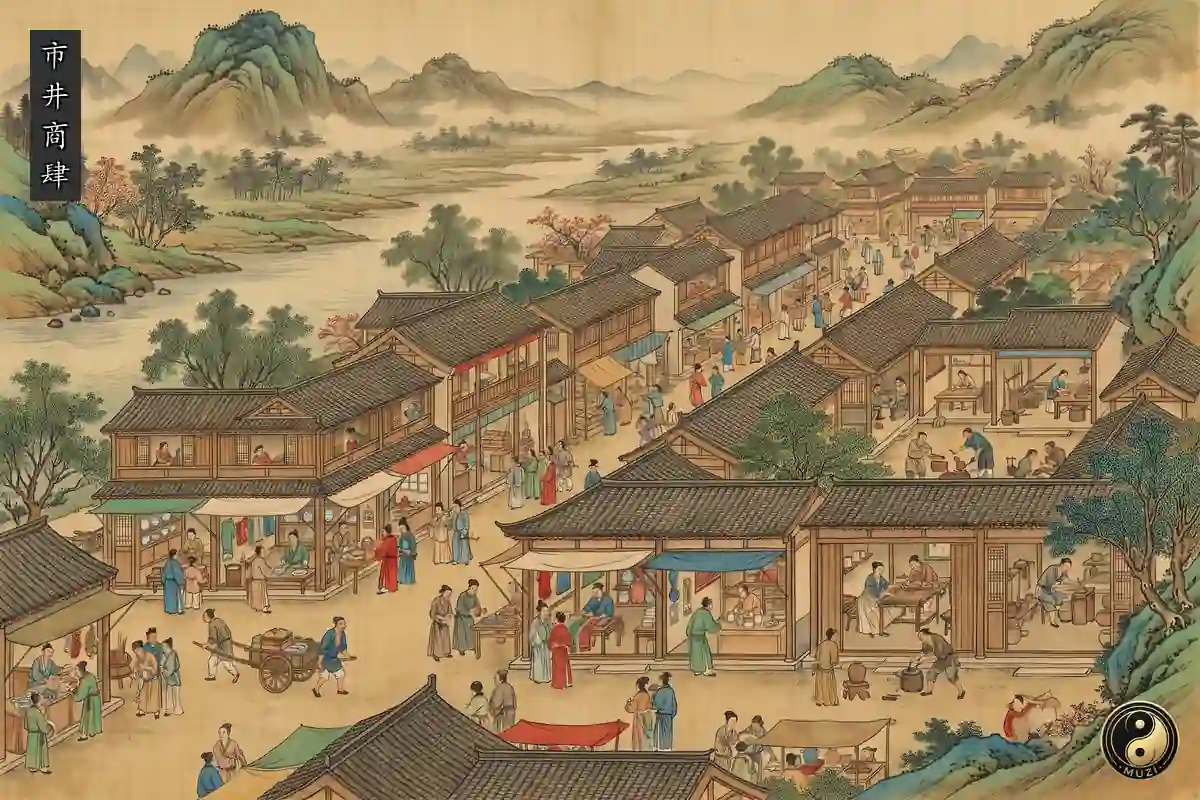 市井商肆
·MUZI·